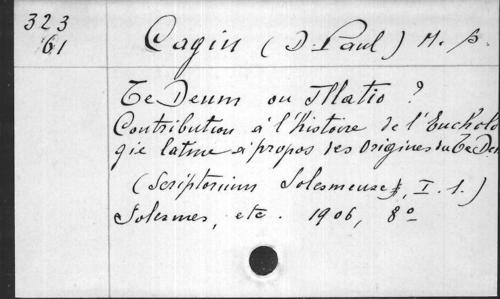 323
61
Cagin (D. Paul) M. B.
Te Deum ou Illatio ?
Contribution à l'histoire de l'Eucholo
gie latine à propos des Origines du Te De
(Scriptorium Solesmense, I. 1.)
Solesmes, etc. 1906, 8°